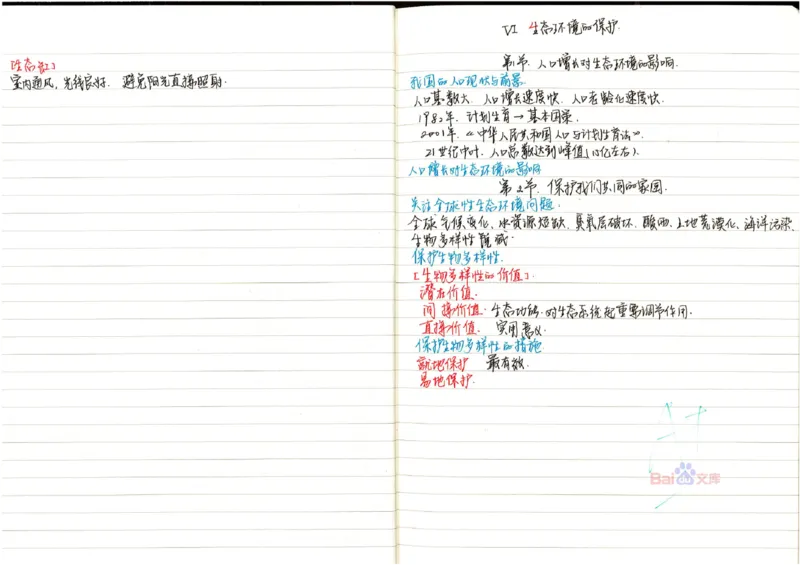 [生态缸]
室内通风，光线良好. 避免阳光直接照射.
VI 生态环境的保护.
第1节. 人口增长对生态环境的影响.
我国的人口现状与前景
人口基数大. 人口增长速度快. 人口老龄化速度快.
1982年. 计划生育→基本国策.
2001年. 《中华人民共和国人口与计划生育法》.
21世纪中叶. 人口总数达到峰值
人口增长对生态环境的影响
第2节. 保护我们共同的家园.
关注全球性生态环境问题.
全球气候变化、水资源短缺、臭氧层破坏、酸雨、土地荒漠化、海洋污染.
生物多样性锐减.
保护生物多样性.
[生物多样性的价值].
潜在价值.
间接价值. 生态功能. 对生态系统起重要调节作用.
直接价值. 实用意义.
保护生物多样性的措施
就地保护 最有效.
易地保护.
Bai 文库